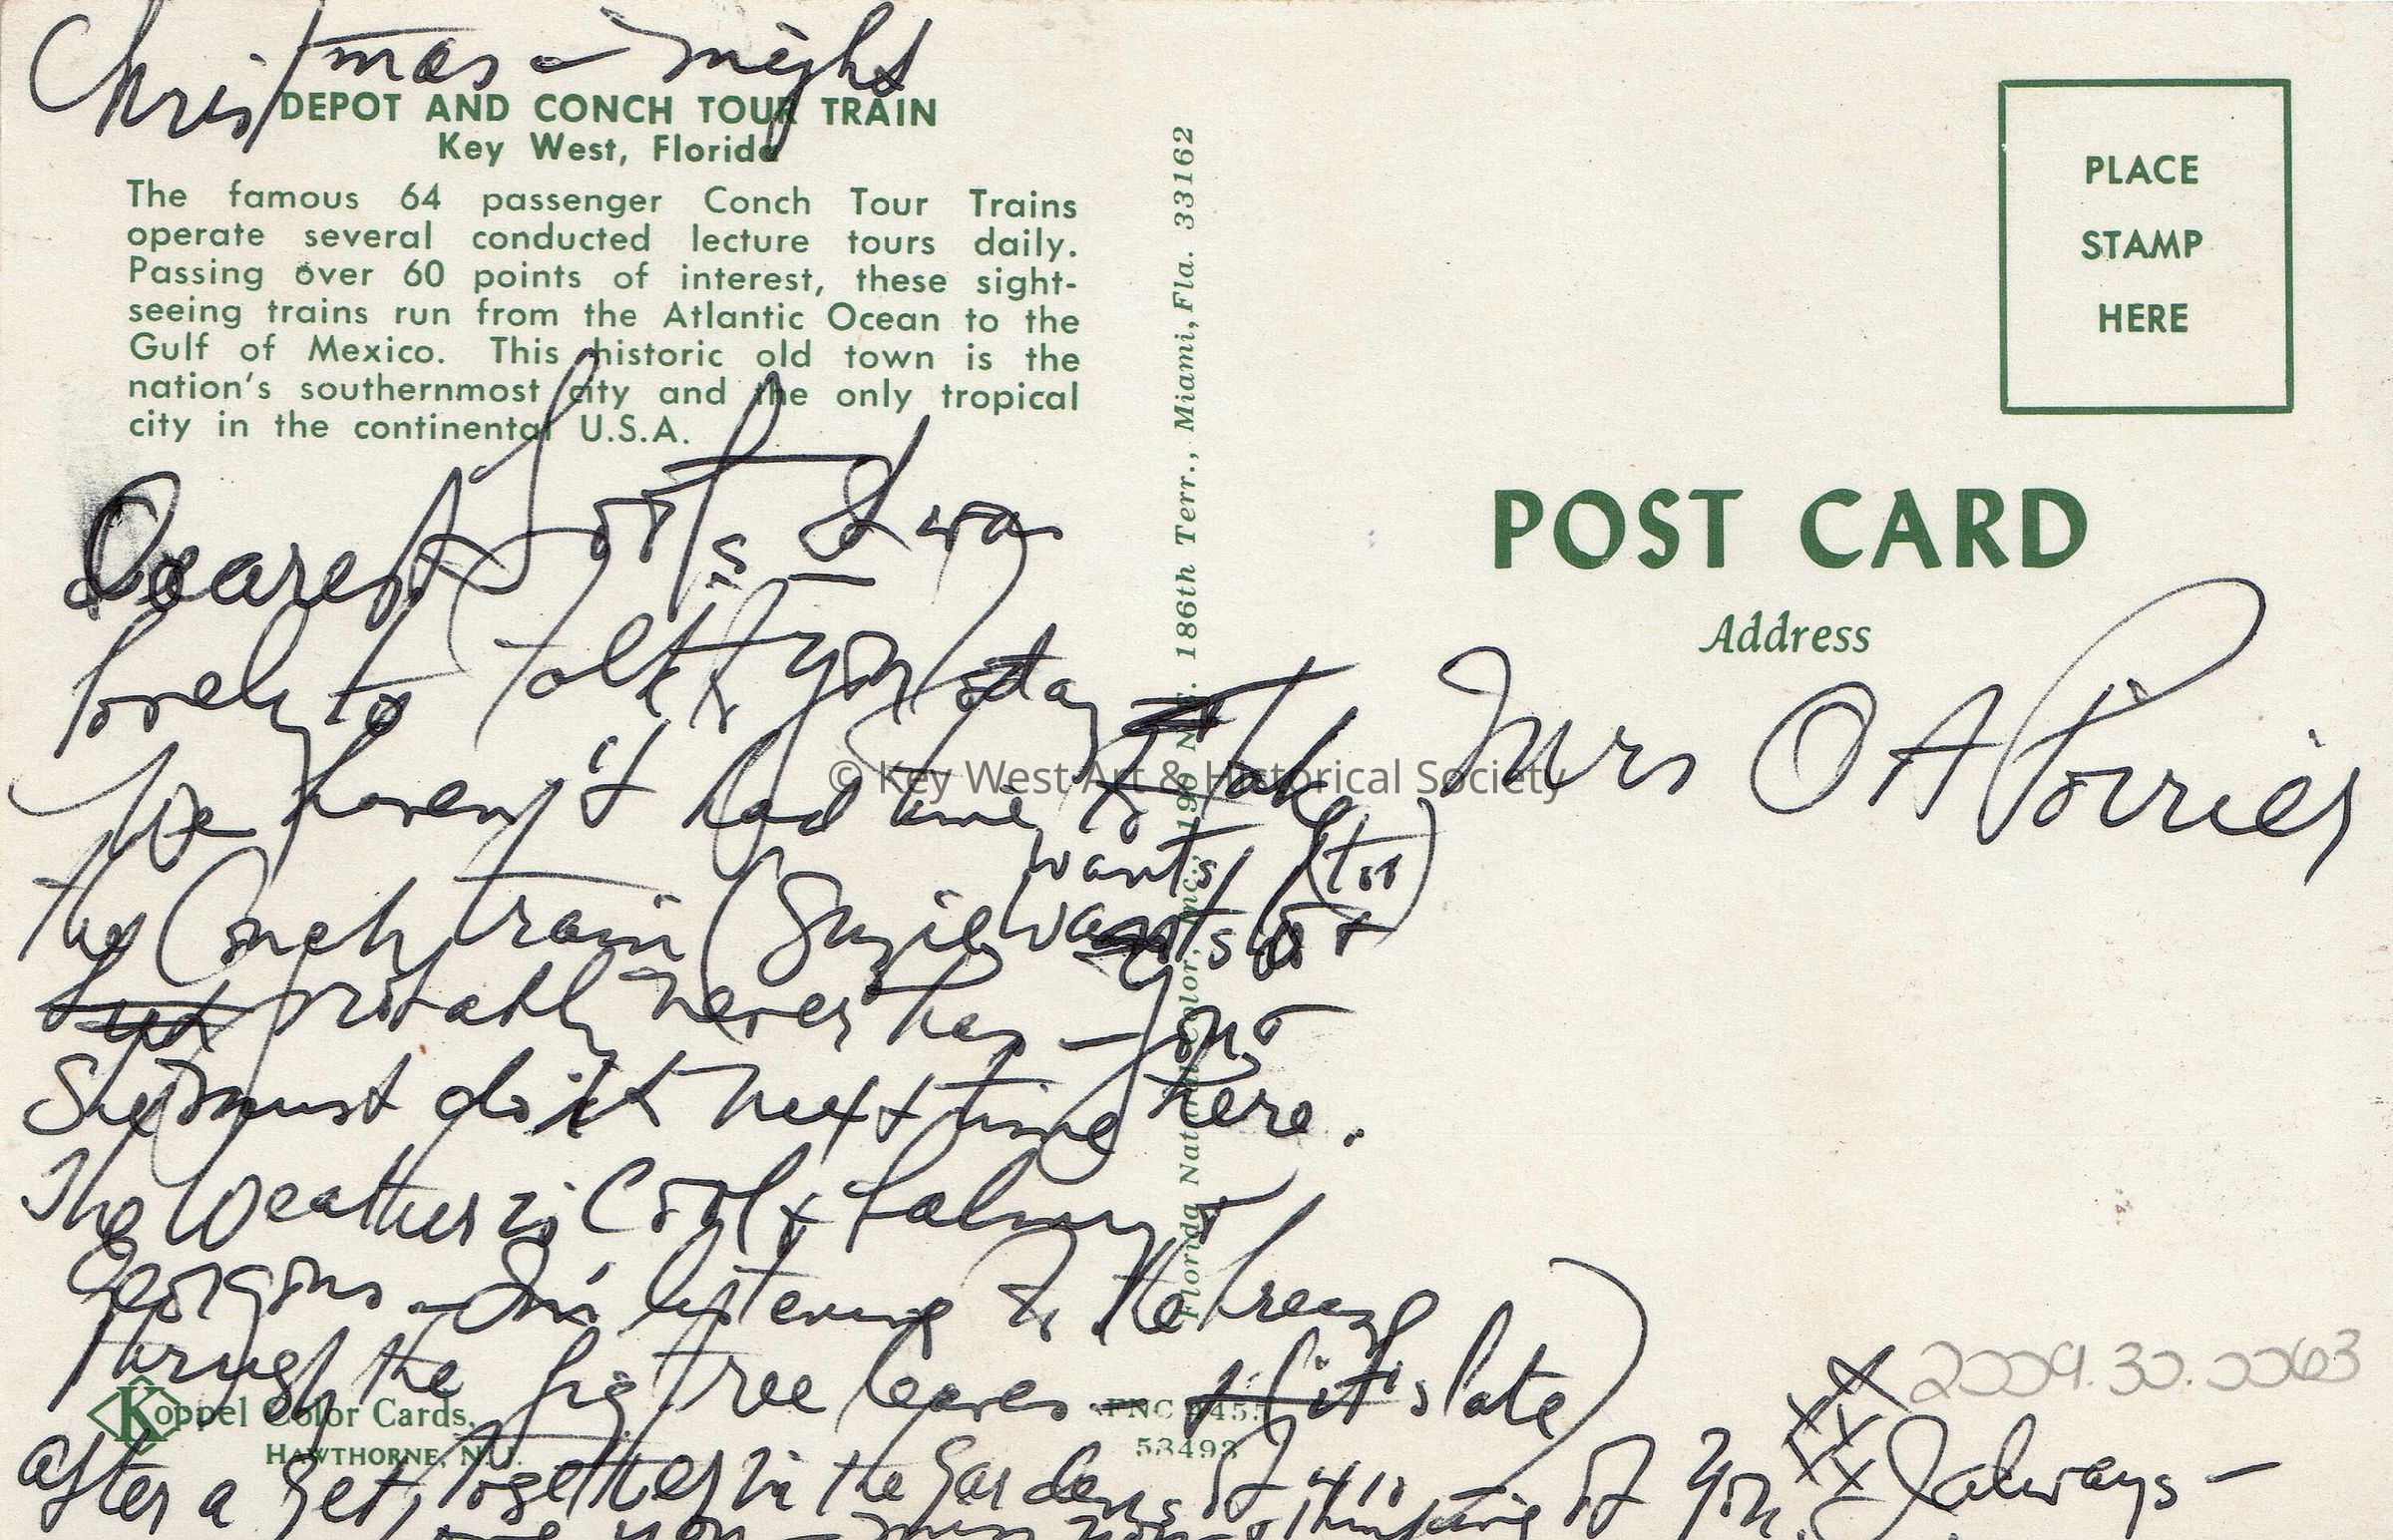 Christmas - night
DEPOT AND CONCH TOUR TRAIN
Key West, Florida
The famous 64 passenger Conch Tour Trains
operate several conducted lecture tours daily.
Passing over 60 points of interest, these sight-
seeing trains run from the Atlantic Ocean to the
Gulf of Mexico. This historic old town is the
nation's southernmost city and the only tropical
city in the continental U.S.A.
Dearest It was
lovely to talk to you today
We haven't had time to take
the Conch train (Suzie wants to
wants (too)
probably never has - You &
She must do it next time here.
The Weather is Cool & balmy &
Gorgeous - I'm listening to the breeze
through the fig tree leaves (it's late)
after a get together in the Gardens of 410
you - miss you - thinking of you. always -
Koppel Color Cards,
HAWTHORNE, N. J.
FNC
53493
Florida Natural Color, Inc., 190 N.E. 186th Terr., Miami, Fla. 33162
PLACE
STAMP
HERE
POST CARD
Address
Mrs O A Poirier
2009.30.0063
© Key West Art & Historical Society